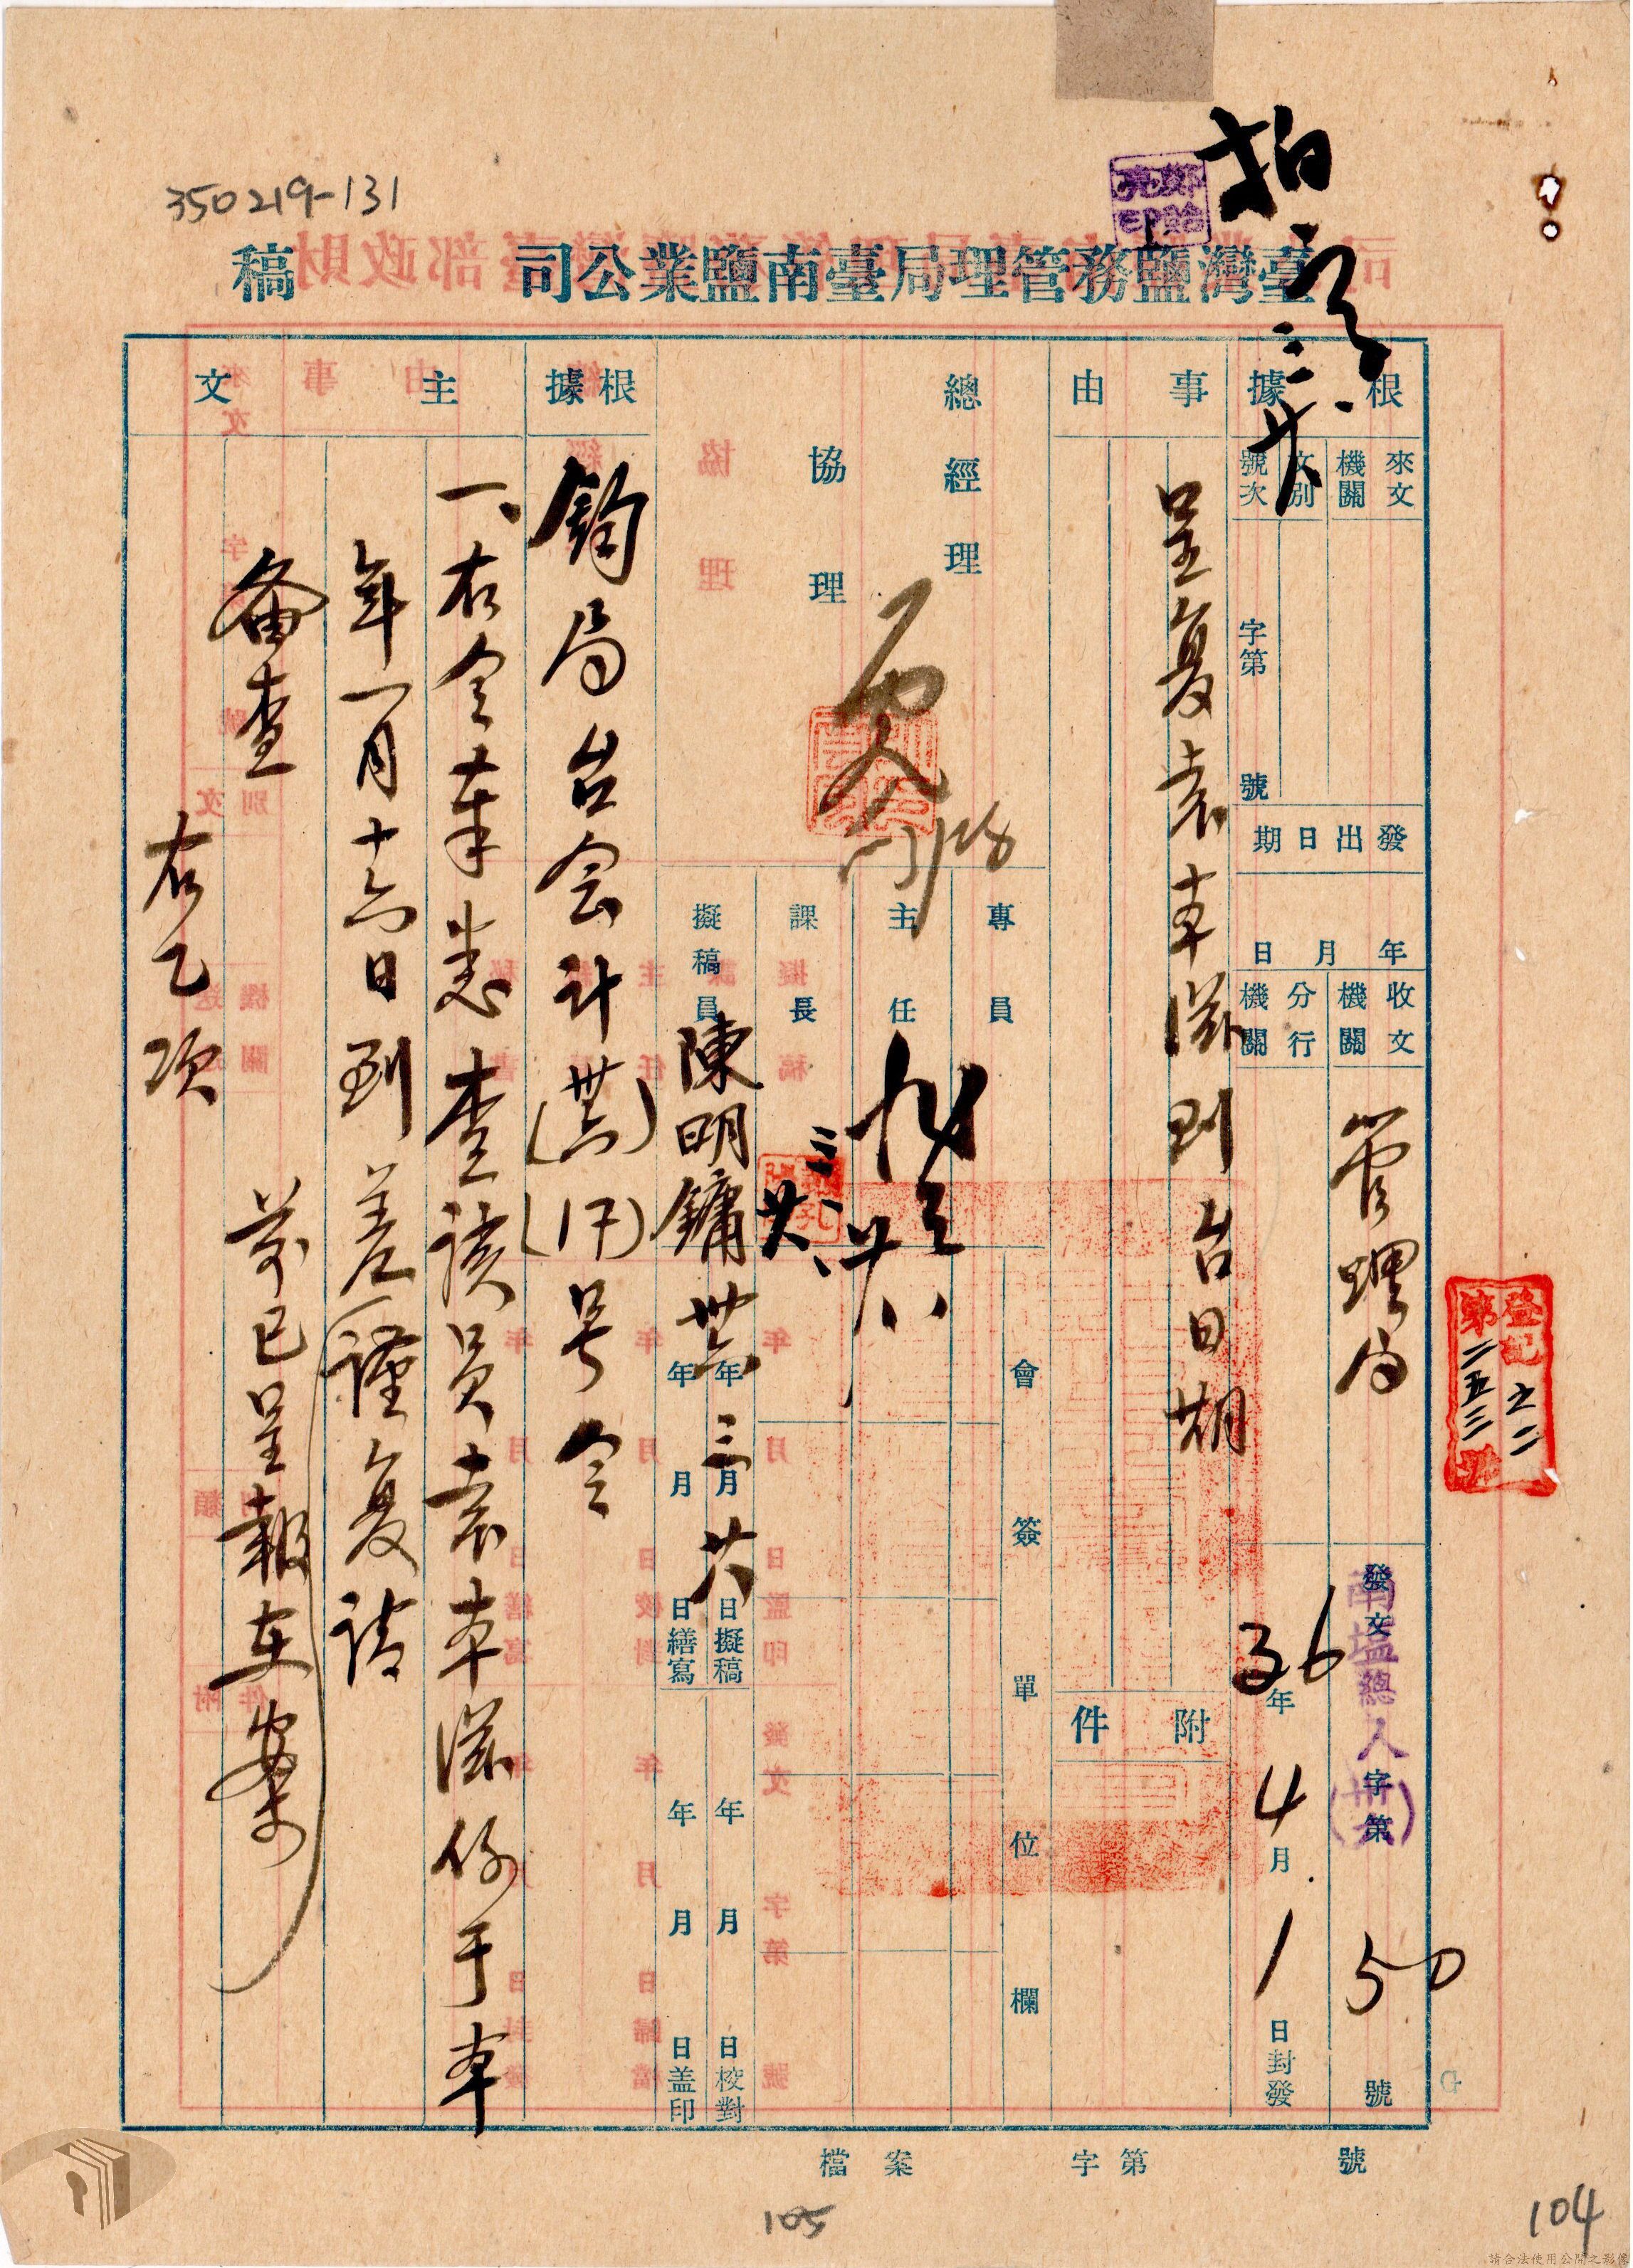 350219-131
臺灣鹽務管理局臺南鹽業公司 稿
根據
來文機關
文別
號次 字第 號
發出日期
年 月 日
收文機關 管理局
分行機關
發文 南塩總人字第(卅六) 50 號
36年4月1日封發
登記 之二
第二五三號
事由
呈复袁本滋到台日期
附件
總經理
協理
專員
主任
課長
擬稿員 陳明鏞
卅六年三月廿六日擬稿
年 月 日繕寫
年 月 日校對
年 月 日盖印
會簽單位欄
根據
鈞局台会計(卅六)(17)号令
主文
一、右令奉悉查該員袁本滋係于本
年一月十六日到差謹复請
备查 前已呈報在案
右乙項
檔案 字第 號
105
104
請合法使用公開之影像